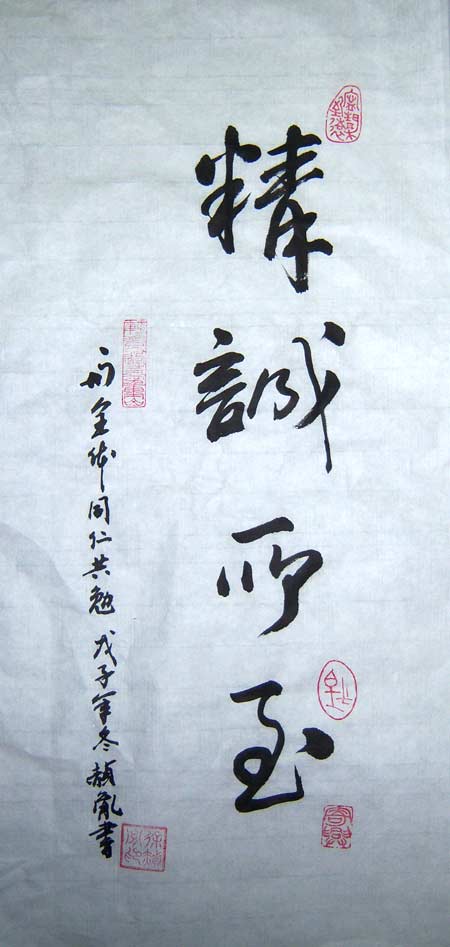 精誠所至
与全体同仁共勉 戊子年冬 赪胤書